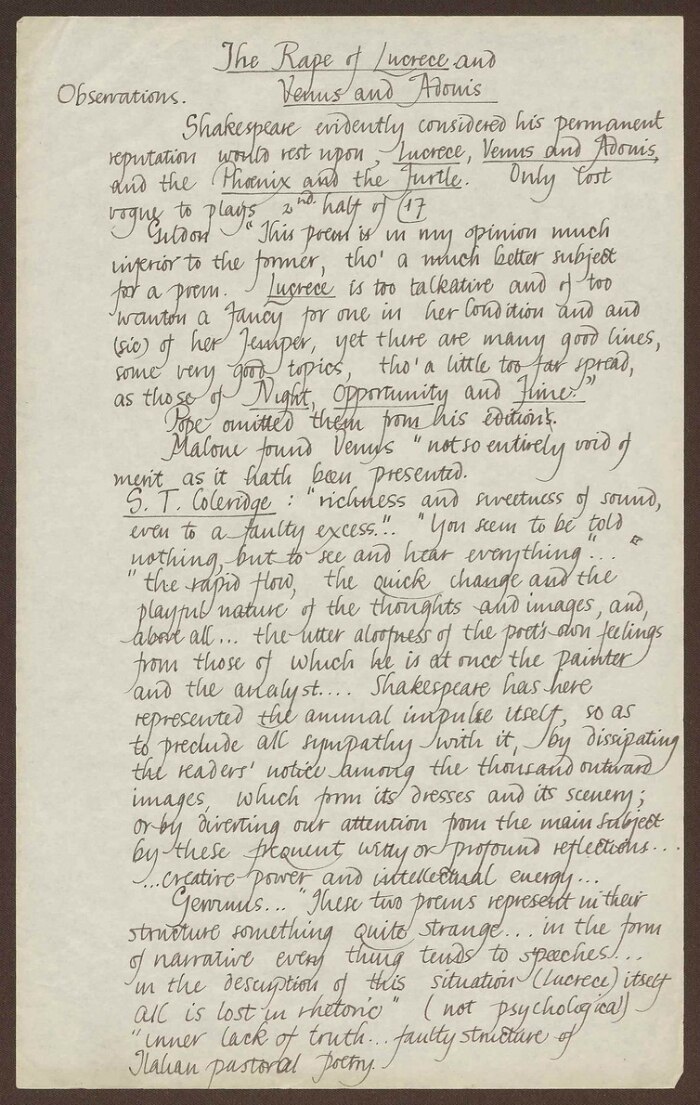 The Rape of Lucrece and
Observations. Venus and Adonis
Shakespeare evidently considered his permanent
reputation would rest upon Lucrece, Venus and Adonis,
and the Phoenix and the Turtle. Only lost
vogue to plays 2nd half of C17
Gildon "This poem is in my opinion much
inferior to the former, tho' a much better subject
for a poem. Lucrece is too talkative and of too
wanton a Fancy for one in her Condition and and
(sic) of her Temper, yet there are many good lines,
some very good topics, tho' a little too far spread,
as those of Night, Opportunity and Time."
Pope omitted them from his editions.
Malone found Venus "not so entirely void of
merit as it hath been presented.
S. T. Coleridge : "richness and sweetness of sound,
even to a faulty excess.". "You seem to be told
nothing, but to see and hear everything"... "
"the rapid flow, the quick change and the
playful nature of the thoughts and images, and,
above all... the utter aloofness of the poet's own feelings
from those of which he is at once the painter
and the analyst.... Shakespeare has here
represented the animal impulse itself, so as
to preclude all sympathy with it, by dissipating
the readers' notice among the thousand outward
images, which form its dresses and its scenery;
or by diverting our attention from the main subject
by these frequent witty or profound reflections...
...creative power and intellectual energy...
Gervinus... "These two poems represent in their
structure something quite strange... in the form
of narrative every thing tends to speeches...
in the description of this situation (Lucrece) itself
all is lost in rhetoric" (not psychological)
"inner lack of truth... faulty structure of
Italian pastoral poetry.